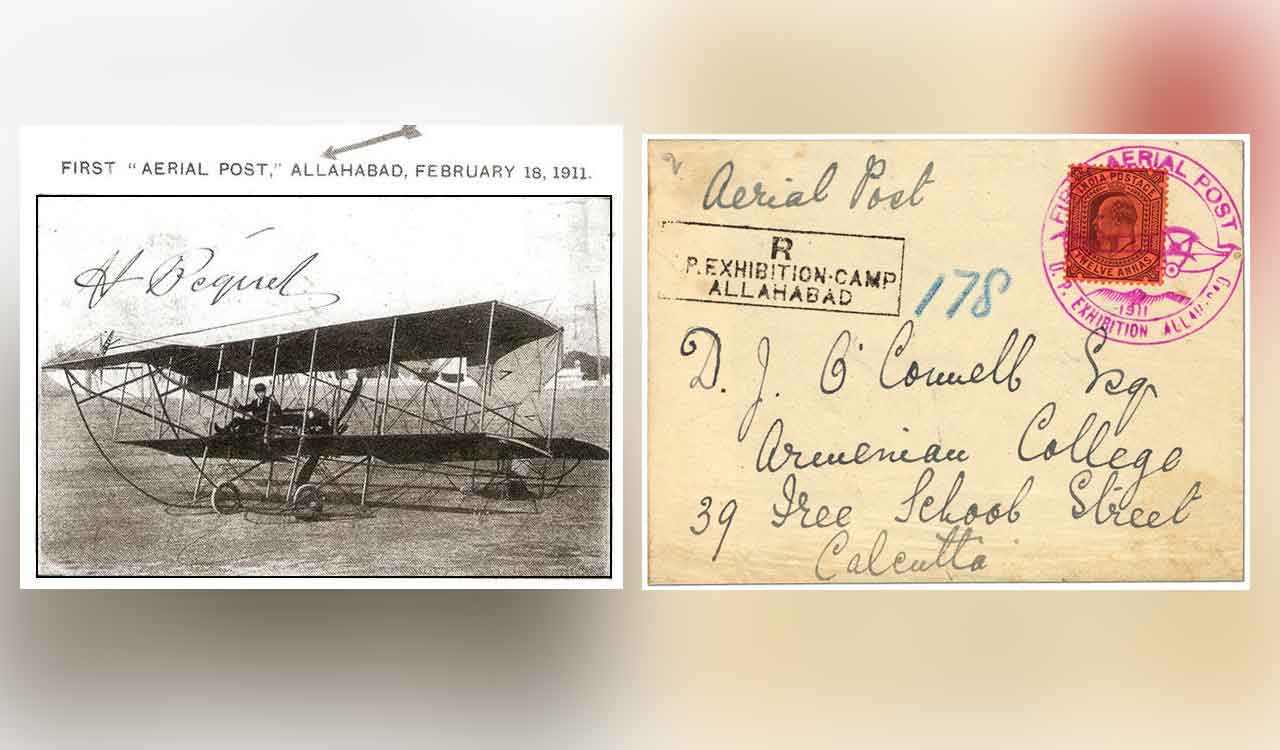 FIRST "AERIAL POST," ALLAHABAD, FEBRUARY 18, 1911.
H Pequet
Aerial Post
R
P. EXHIBITION·CAMP
ALLAHABAD
178
FIRST AERIAL POST
1911
U. P. EXHIBITION ALLAHABAD
INDIA POSTAGE
TWELVE ANNAS
D. J. O'Connell Esq
Armenian College
39 Free School Street
Calcutta